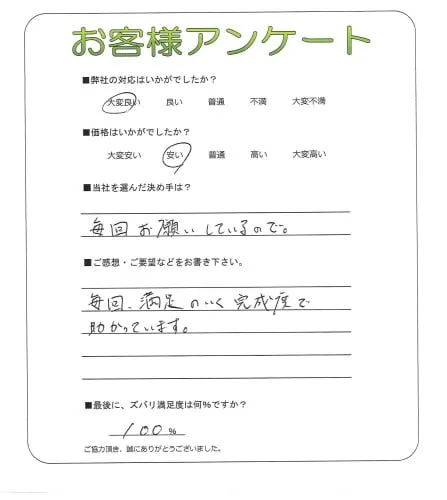 お客様アンケート
■弊社の対応はいかがでしたか?
大変良い 良い 普通 不満 大変不満
■価格はいかがでしたか?
大変安い 安い 普通 高い 大変高い
■当社を選んだ決め手は?
毎回お願いしているので。
■ご感想・ご要望などをお書き下さい。
毎回、満足のいく完成度で
助かっています。
■最後に、ズバリ満足度は何%ですか?
100%
ご協力頂き、誠にありがとうございました。